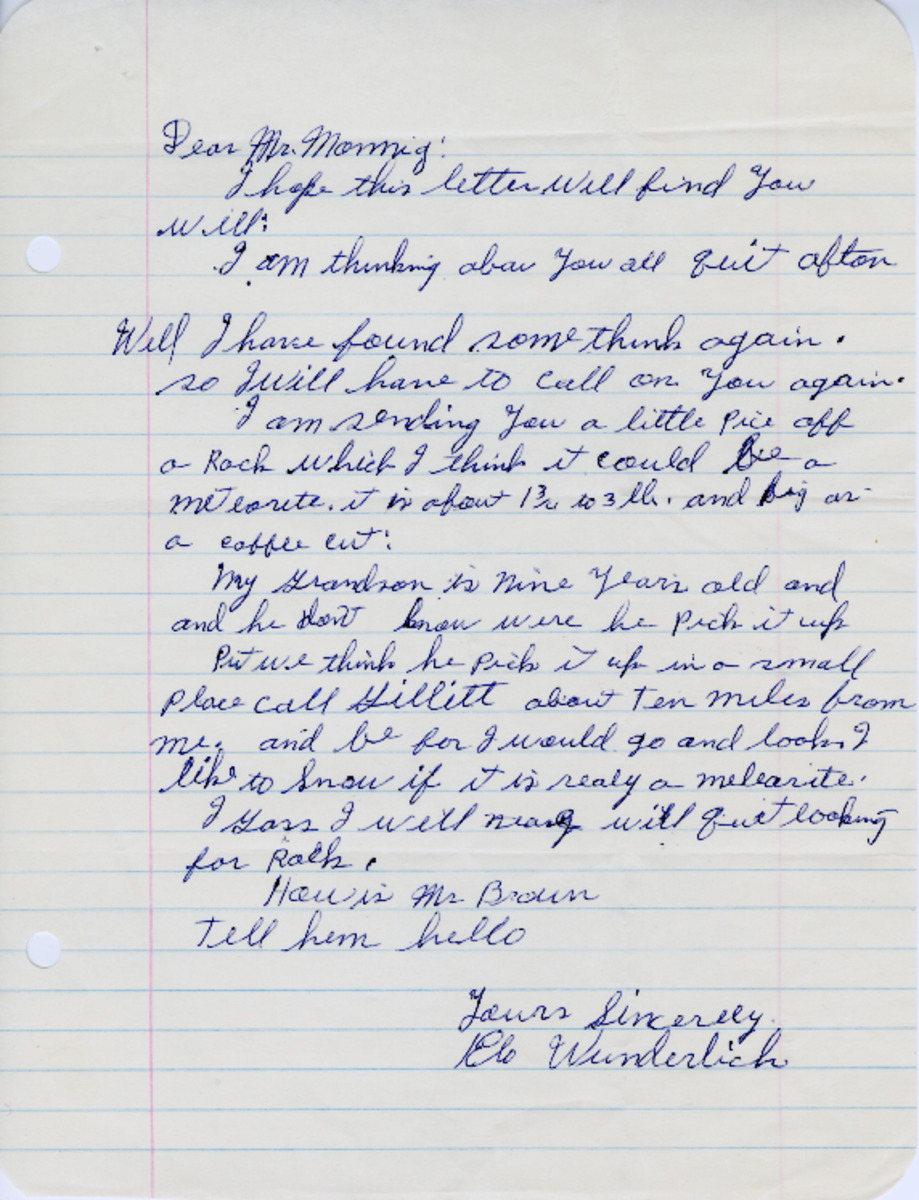 Dear Mr. Monnig:
I hope this letter will find you
will:
I am thinking abau you all quit afton
Well I have found some think again.
so I will have to call on you again.
I am sending you a little pice off
a Rock which I think it could be a
meteorite. it is about to 3 lb. and big as
a coffee cut:
My Grandson is nine years old and
and he dont know were he pick it up
Put we think he pick it up in a small
place call Gillitt about Ten miles from
me. and be for I would go and look I
like to know if it is realy a meteorite.
I I well will quit looking
for Rock.
How is Mr Brown
Tell hem hello
Yours Sincerely.
Wunderlich